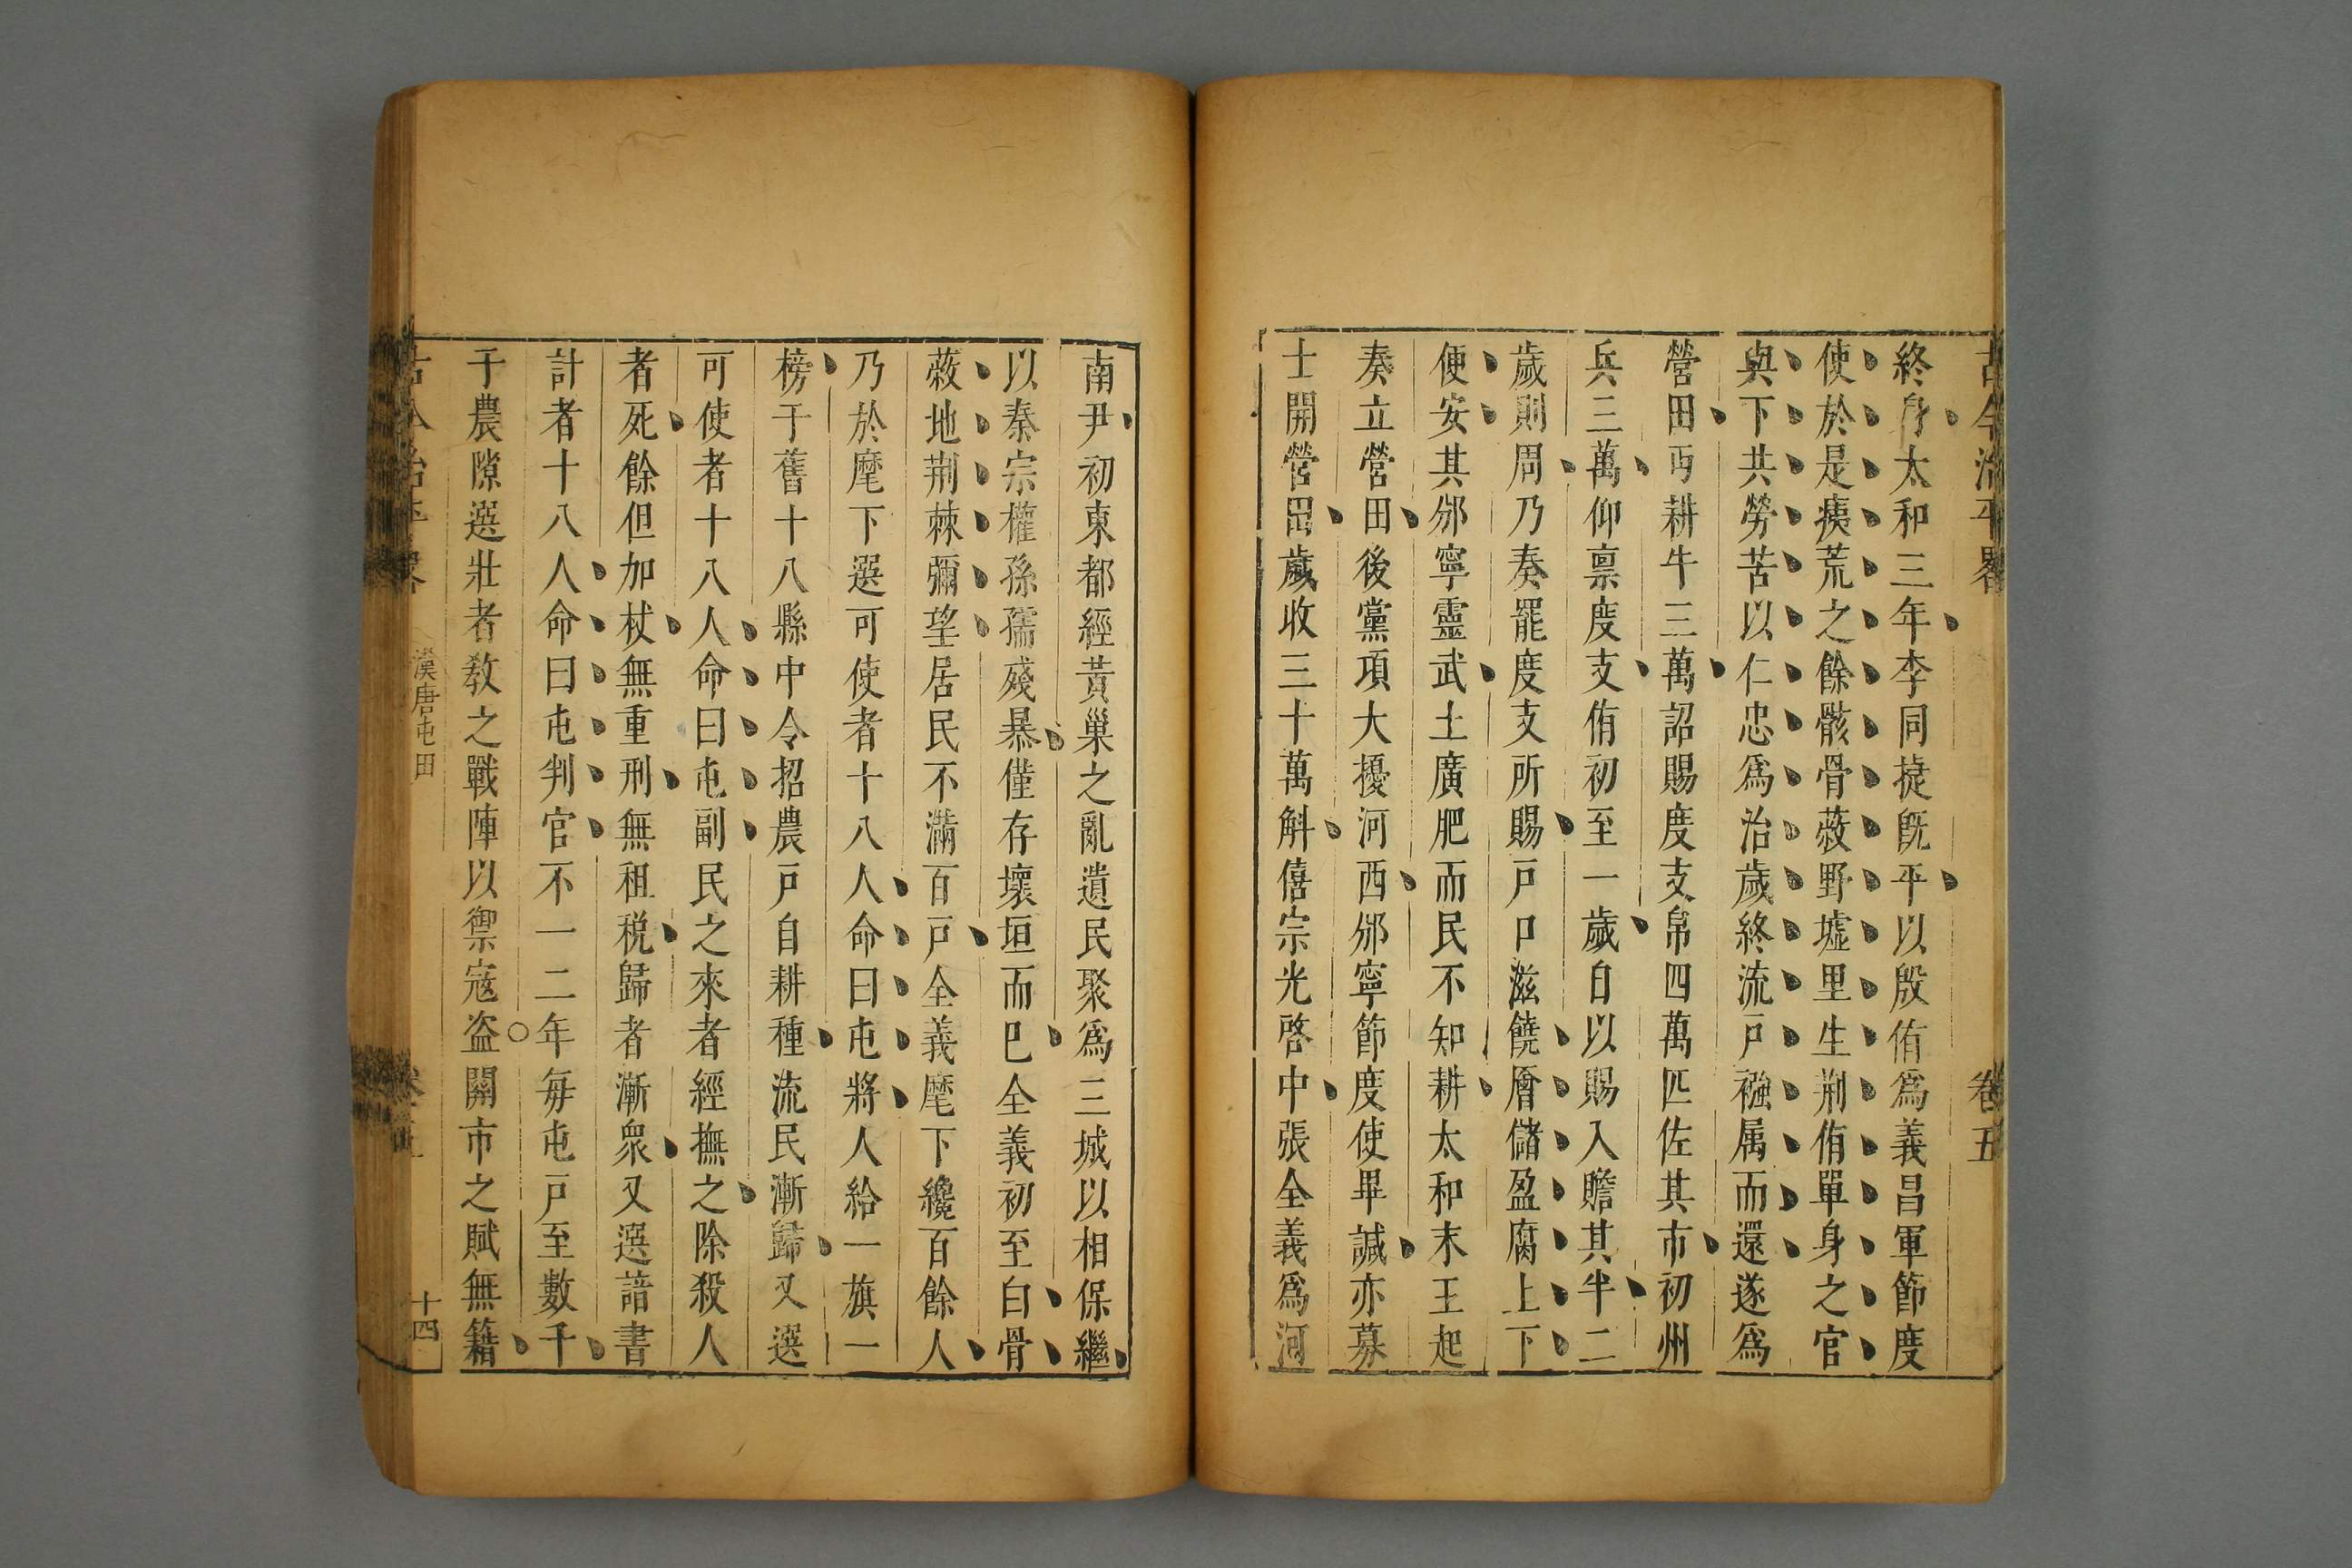 古今治平畧 卷五
終身太和三年李同捷旣平以殷侑爲義昌軍節度
使於是痍荒之餘骸骨蔽野墟里生荆侑單身之官
與下共勞苦以仁忠爲治歲終流戸襁属而還遂爲
營田丐耕牛三萬詔賜度支帛四萬匹佐其市初州
兵三萬仰禀度支侑初至一歲自以賜入贍其半二
歲則周乃奏罷度支所賜戸口滋饒廥儲盈腐上下
便安其邠寧靈武土廣肥而民不知耕太和末王起
奏立營田後黨項大擾河西邠寧節度使畢諴亦募
士開營田歲收三十萬斛僖宗光啓中張全義爲河
南尹初東都經黃巢之亂遺民聚爲三城以相保繼
以秦宗權孫孺殘暴僅存壞垣而巳全義初至白骨
蔽地荆棘彌望居民不滿百戸全義麾下纔百餘人
乃於麾下選可使者十八人命曰屯將人給一旗一
榜于舊十八縣中令招農戸自耕種流民漸歸又選
可使者十八人命曰屯副民之來者經撫之除殺人
者死餘但加杖無重刑無租稅歸者漸衆又選諳書
計者十八人命曰屯判官不一二年每屯戸至數千
于農隙選壯者敎之戰陣以禦寇盗關市之賦無籍
古今治平畧 漢唐屯田 卷五 十四